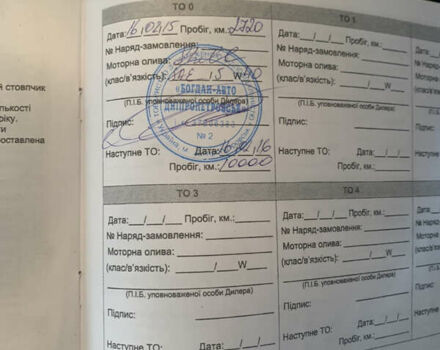 й стовпчик
лькості
ріку.
ти
оставлена
ТО 0
Дата: 16.02.15 Пробіг, км.: 2720
№ Наряд-замовлення:
Моторна олива:
(клас/в'язкість): SAE 5 W 40
(П.І.Б. уповноваженої особи Дилера)
Підпис:
«БОГДАН-АВТО
ДНІПРОПЕТРОВСЬК»
№ 2
Наступне ТО: Дата: 16.02.16
Пробіг, км.:
10000
ТО 1
Дата:___/___/___ Пробіг, км.:
№ Наряд-замовлення:
Моторна олива:
(клас/в'язкість): /W
(П.І.Б. уповноваженої особи Дилера)
Підпис:
Наступне ТО: Дата:___/___/___
Пробіг, км.:
ТО 3
Дата:___/___/___ Пробіг, км.:
№ Наряд-замовлення:
Моторна олива:
(клас/в'язкість): /W
(П.І.Б. уповноваженої особи Дилера)
Підпис:
Наступне ТО: Дата:___/___/___
Пробіг, км.:
ТО 4
Дата:___/___/___ Пробіг, км.:
№ Наряд-замовлення:
Моторна олива:
(клас/в'язкість): /W
(П.І.Б. уповноваженої особи Дилера)
Підпис:
Наступне ТО: